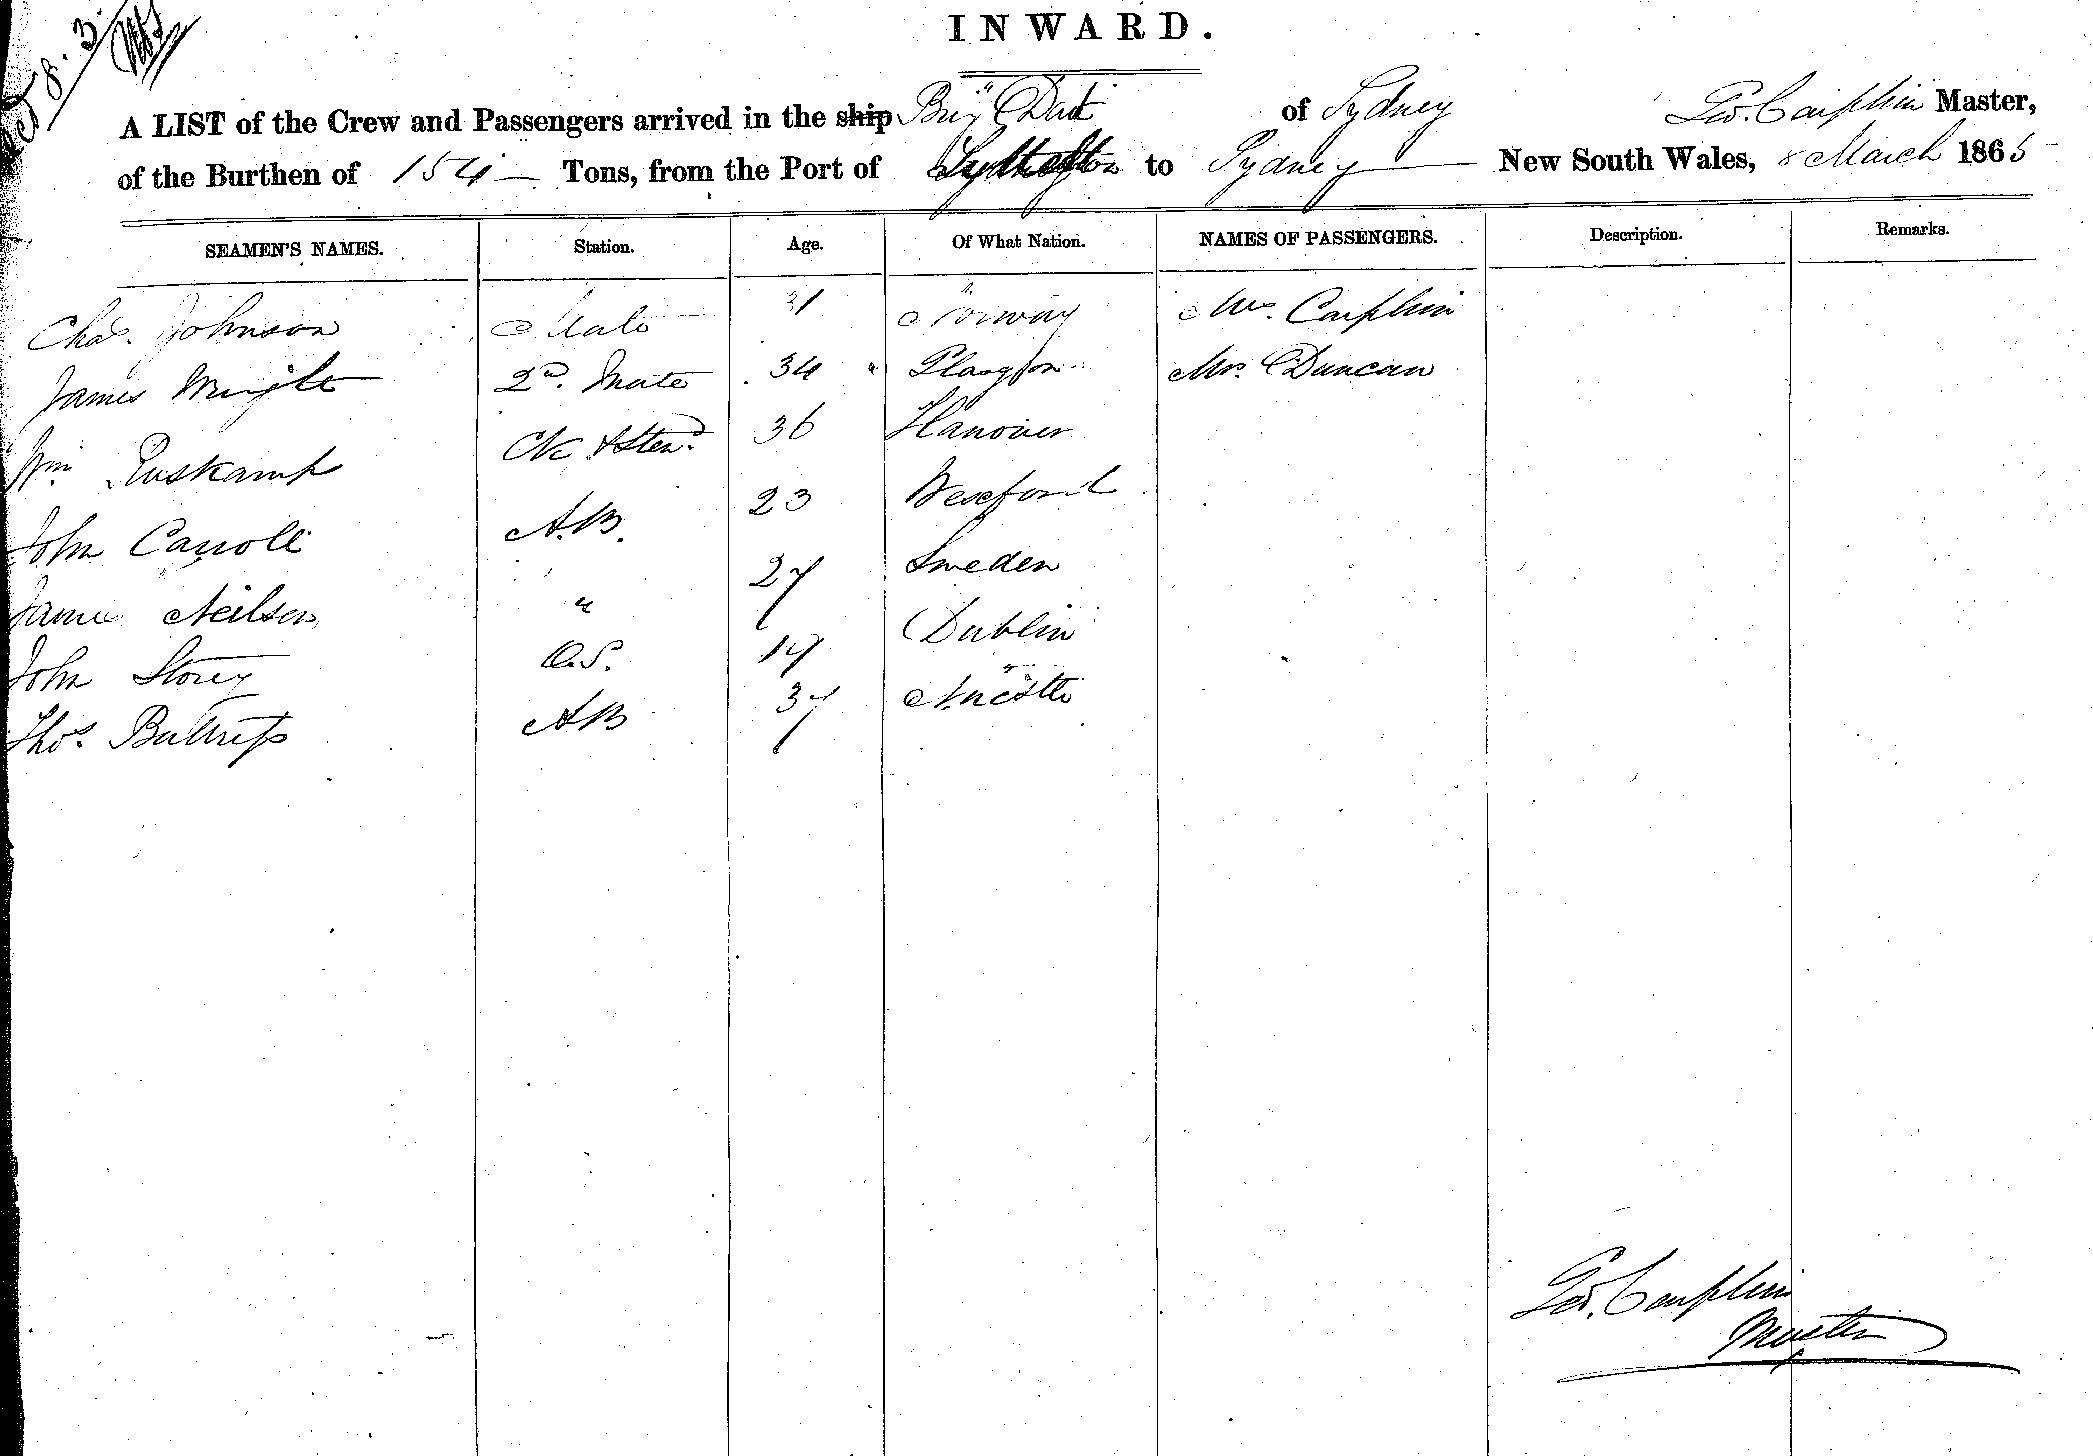 8.3.
INWARD.
A LIST of the Crew and Passengers arrived in the ship Brig Dart of Sydney Geo. Cauplin Master,
of the Burthen of 154 Tons, from the Port of Lyttelton to Sydney New South Wales, 8 March 1865
SEAMEN'S NAMES. Station. Age. Of What Nation. NAMES OF PASSENGERS. Description. Remarks.
Chas. Johnson Mate 31 Norway Mrs. Cauplin
James Wright 2d. Mate 34 Glasgow Mr. Duncan
Wm Ruskamp Ck & Stewd 36 Hanover
John Carroll A.B. 23 Wexford
James Neilson " 27 Sweden
John Storey O.S. 17 Dublin
Thos. AB 37 N.castle
Geo. Cauplin
Master